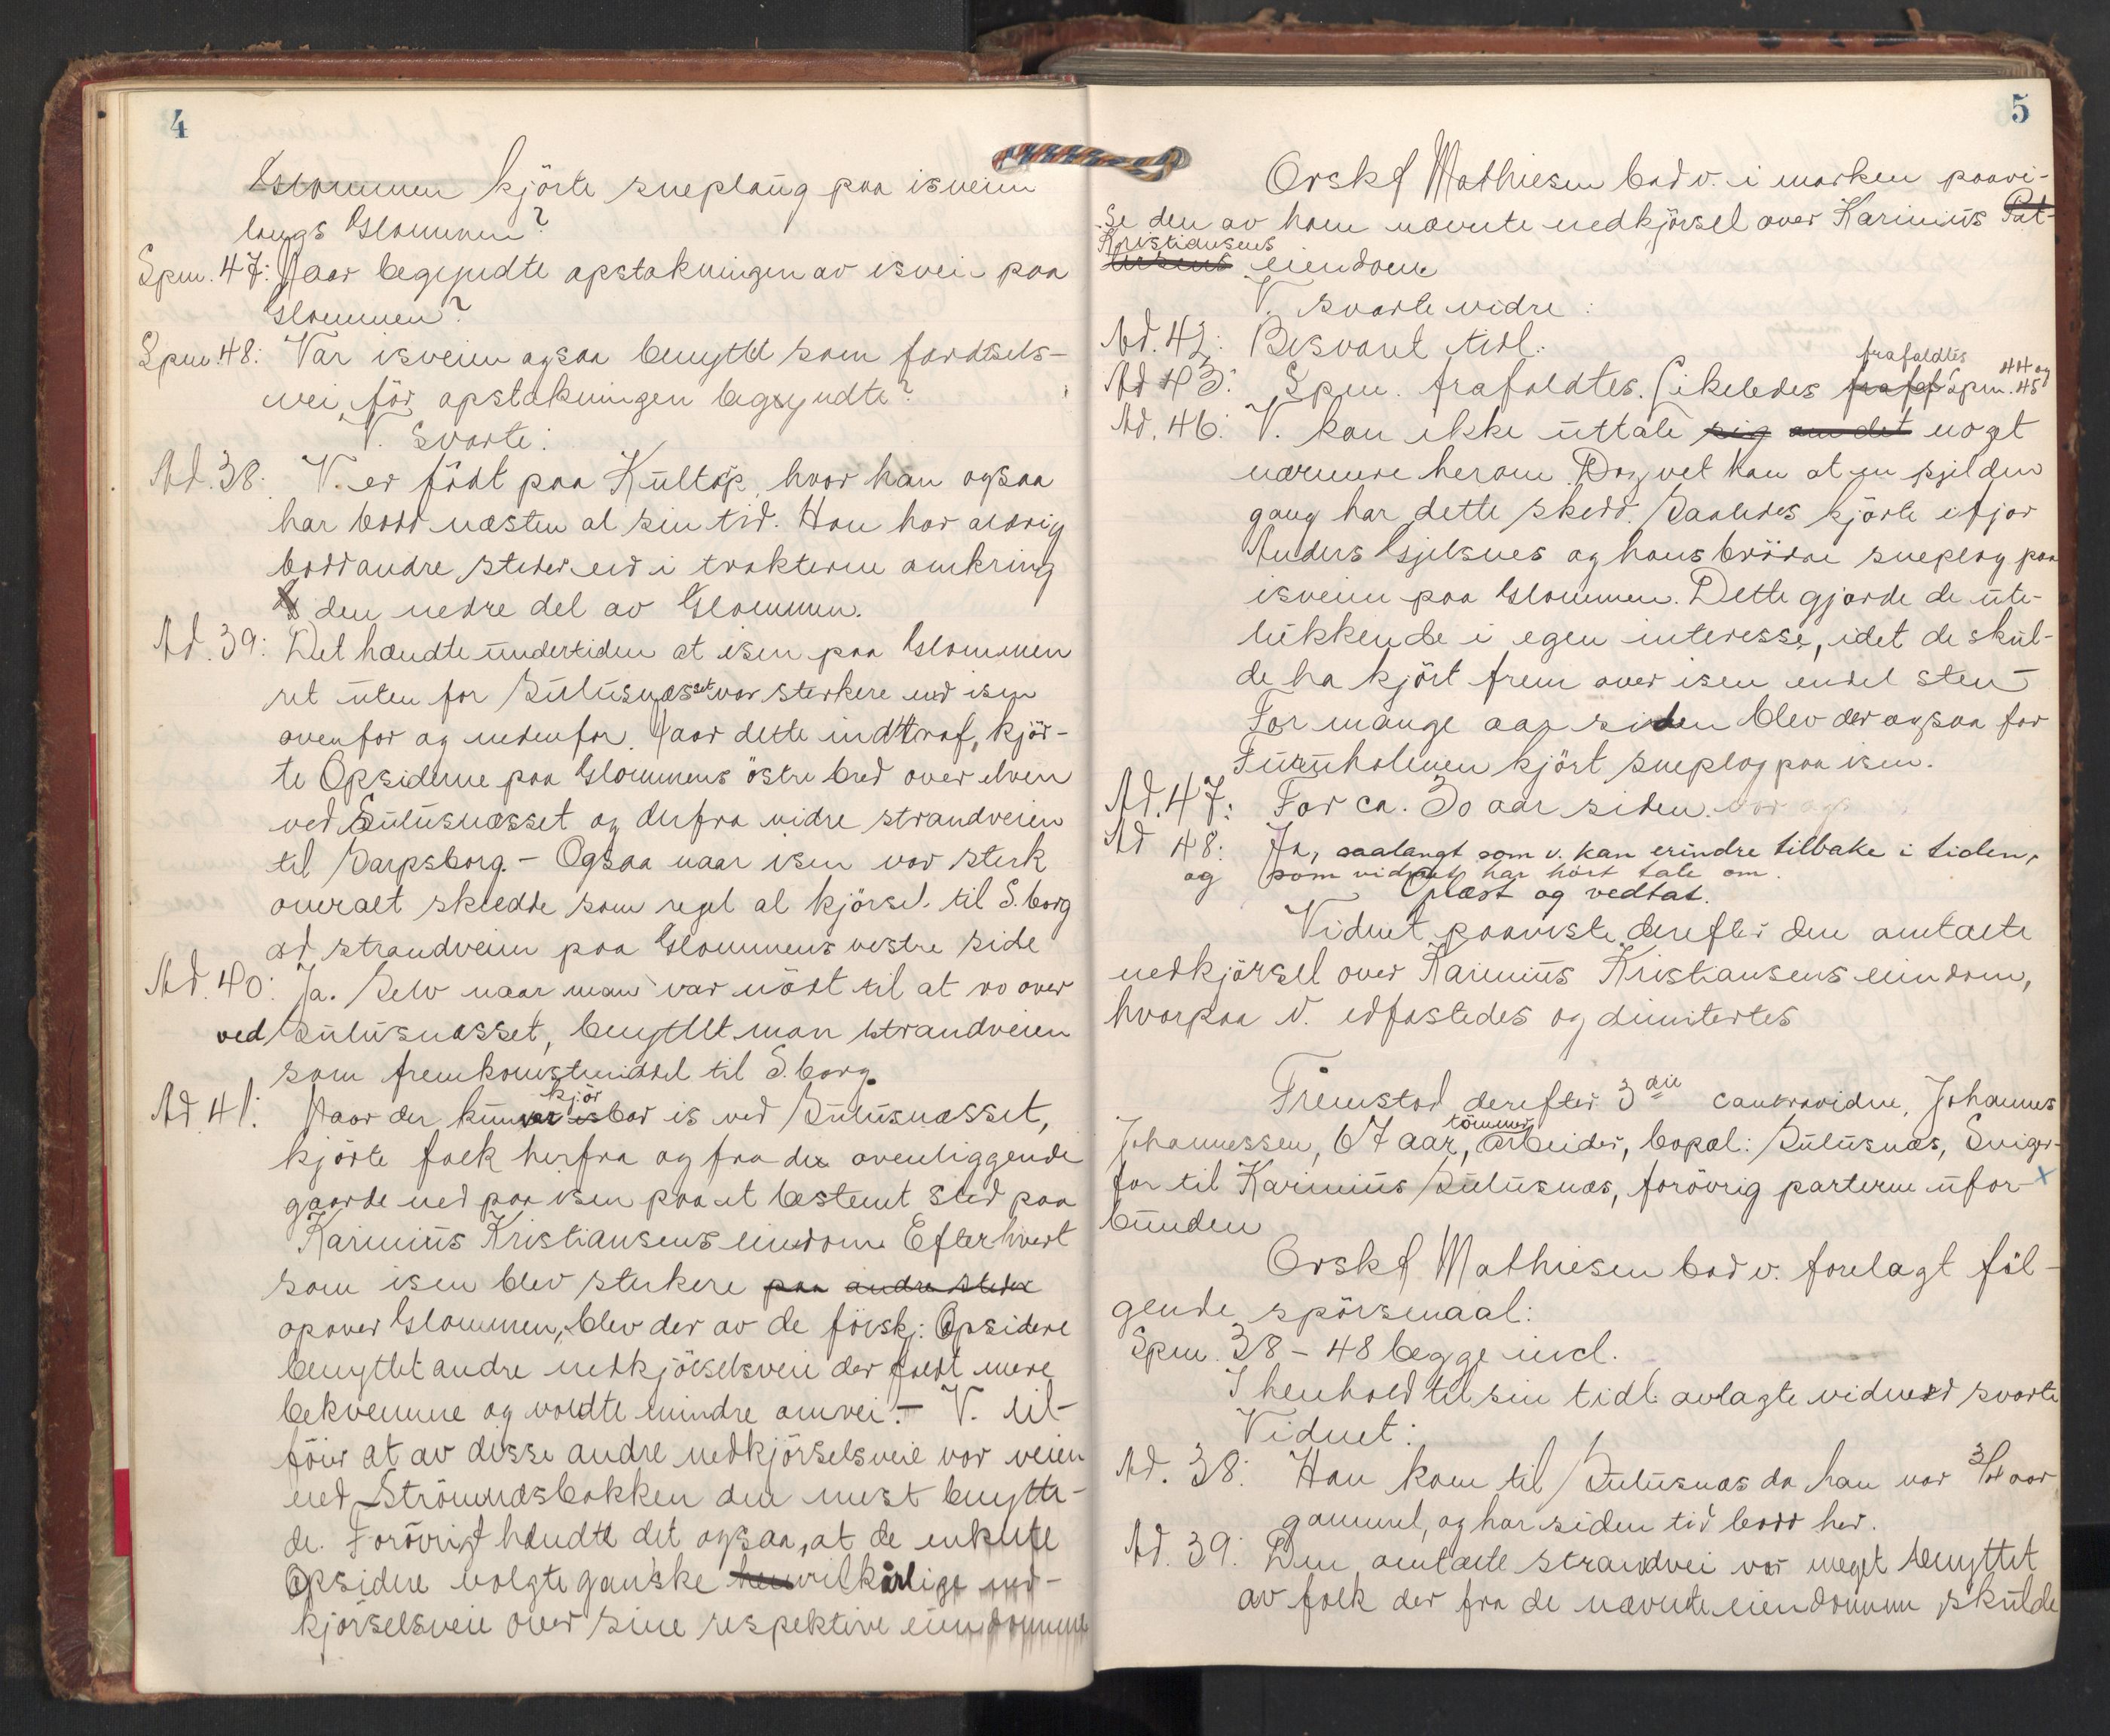 4
Glommen kjörte sneploug paa isveien
langs Glommen?
Spm. 47: Naar begyndte opstakningen av isvei paa
Glommen?
Spm. 48: Var isveien ogsaa benyttet som færdsels-
vei för opstakningen begyndte?
V. svarte:
Ad. 38. V. er födt paa Kultop, hvor han ogsaa
har bodd næsten al sin tid. Han har aldrig
bodd andre steder end i trakterne omkring
den nedre del av Glommen.
Ad. 39: Det hændte undertiden at isen paa Glommen
ret uten for Sulusnæsset var sterkere end isen
ovenfor og nedenfor. Naar dette indtraf, kjör-
te Opsiderne paa Glommens östre bred over elven
ved Sulusnæsset og derfra vidre strandveien
til Sarpsborg. - Ogsaa naar isen var sterk
overalt skedde som regel al kjörsel til S.borg
ad strandveien paa Glommens vestre side
Ad. 40: Ja. Selv naar man var nödt til at ro over
ved Sulusnæsset, benyttet man strandveien
som fremkomstmiddel til S.borg.
Ad 41: Naar der kun var kjörbar is ved Sulusnæsset,
kjörte folk herfra og fra de ovenliggende
gaarde ned paa isen paa et bestemt sted paa
Karinius Kristiansens eiendom. Efterhvert
som isen blev sterkere paa andre steder
opover Glommen, blev der av de forskj. Opsidere
benyttet andre nedkjörselsveie der faldt mere
bekvemme og voldte mindre omvei. - V. til-
föier at av disse andre nedkjörselsveie var veien
ned Strömnæsbakken den mest benytte-
de. Forövrigt hændte det ogsaa, at de enkelte
Opsidere valgte ganske vilkårlige ned-
kjörselsveie over sine respektive eiendomme
5
Orskf Mathiesen bad v. i marken paavi-
se den av ham nævnte nedkjörsel over Karinius Pet-
Kristiansens
eiendom
V. svarte vidre:
Ad. 42: Besvaret tidl.
Ad 43: Spm. frafaldtes. Likeledes frafaldtes Spm. 44 og 45
Ad. 46: V. kan ikke uttale sig om det nogt
nærmere herom. Dog vet han at en sjelden
gang har dette skedd. Saaledes kjörte ifjor
Anders Gjelsnes og hans brödre sneplog paa
isveien paa Glommen. Dette gjorde de ute-
lukkende i egen interesse, idet de skul-
de ha kjört frem over isen endel sten -
For mange aar siden blev der ogsaa for
Furuholmen kjört sneplog paa isen.
Ad. 47: For ca. 30 aar siden.
Ad 48: Ja, saalangt som v. kan erindre tilbake i tiden,
og som vidnet har hört tale om.
Oplæst og vedtat.
Vidnet paaviste derefter den omtalte
nedkjörsel over Karinius Kristiansens eiendom,
hvorpaa v. edfæstedes og dimitertes
Fremstod derefter 3die contravidne, Johannes
Johannessen, 67 aar, tömmerarbeider, bopæl: Sulusnæs, Sviger-
far til Karinius Sulusnæs, forövrig parterne ufor-
bunden
Orskf Mathiesen bad v. forelagt föl-
gende spörsmaal:
Spm. 38 - 48 begge incl.
I henhold til sin tidl. avlagte vidneed svarte
Vidnet:
Ad. 38: Han kom til Sulusnæs da han var 3/4 aar
gammel, og har siden tid bodd her.
Ad. 39: Den omtalte strandvei var meget benyttet
av folk der fra de nævnte eiendomme skulde